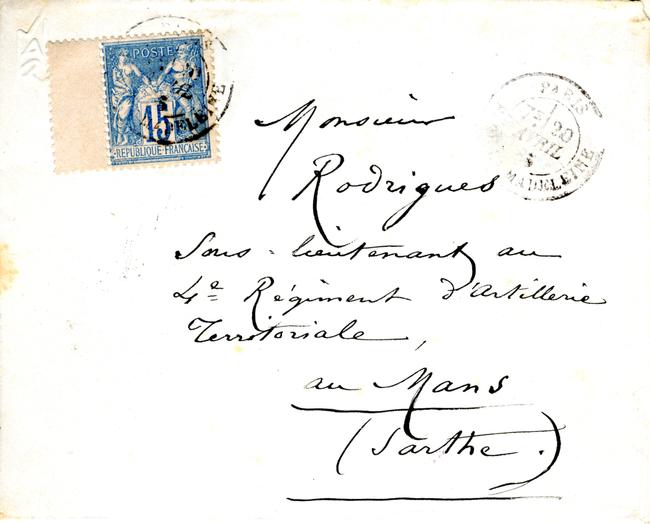 POSTE
15
REPUBLIQUE FRANÇAISE
PARIS
20
AVRIL
MADELEINE
Monsieur
Rodrigues
Sous-lieutenant au
4e Régiment d'Artillerie
Territoriale,
au Mans
(Sarthe.)